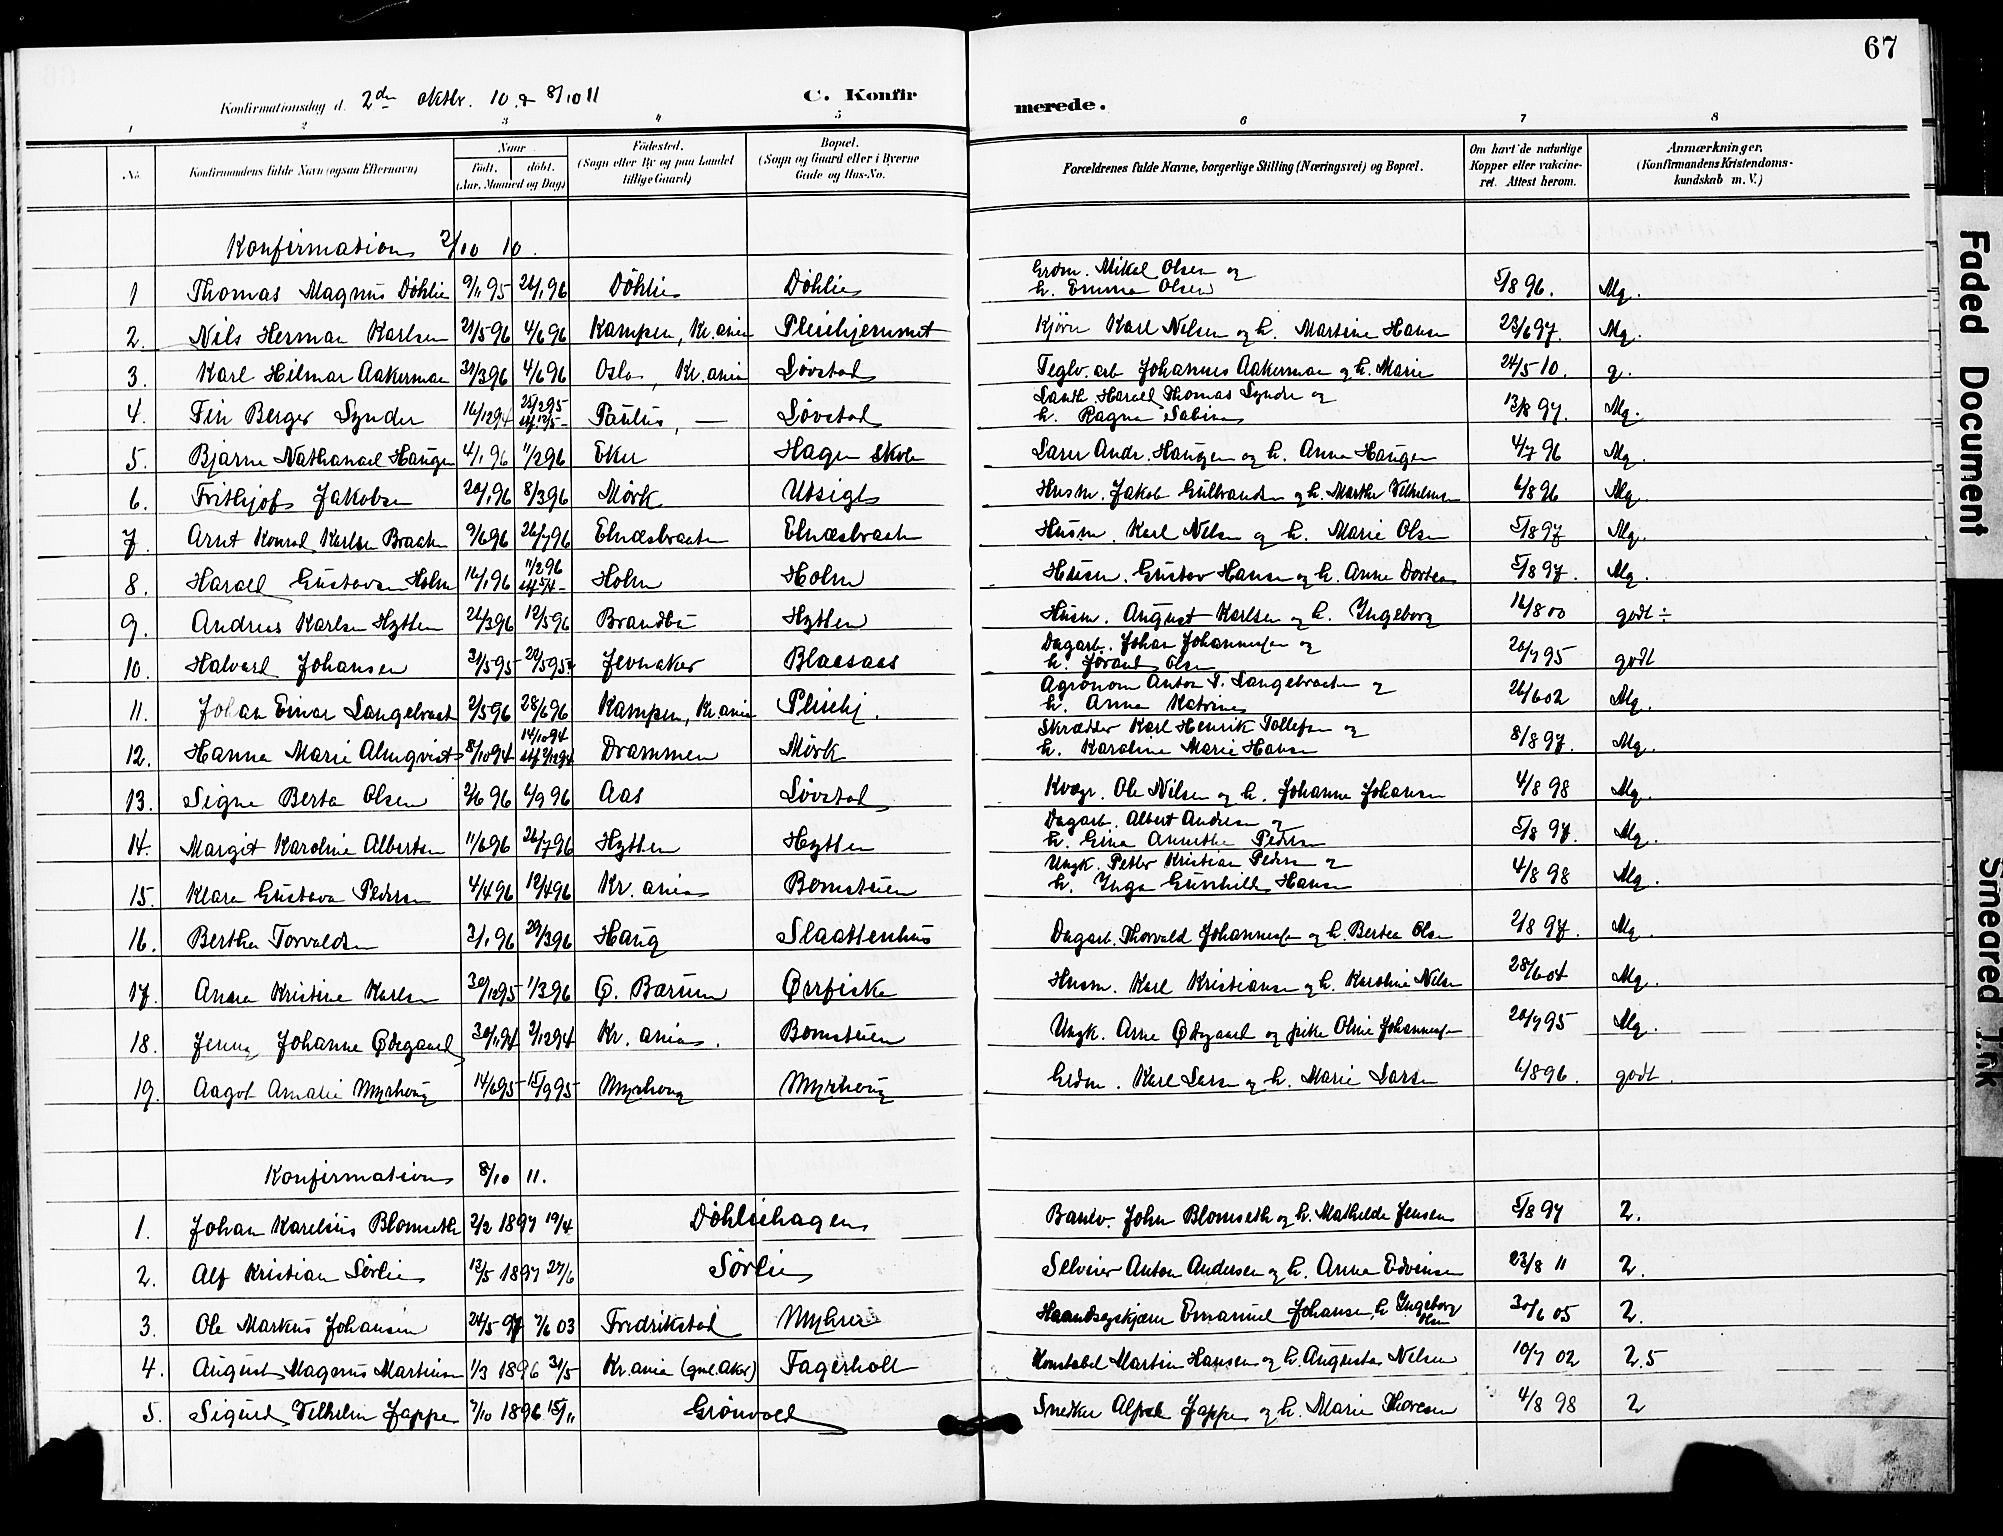 67
Konfirmationsdag d. 2den oktbr. 10 & 8/10 11 C. Konfirmerede.
1 2 3 4 5 6 7 8
No. Konfirmandens fulde Navn (ogsaa Efternavn) Naar Født. døbt. (Aar, Maaned og Dag) Fødested. (Sogn eller By og paa Landet tillige Gaard) Bopæl. (Sogn og Gaard eller i Byerne Gade og Hus-No. Forældrenes fulde Navne, borgerlige Stilling (Næringsvei) og Bopæl. Om havt de naturlige Kopper eller vakcineret. Attest herom. Anmærkninger. (Konfirmandens Kristendomskundskab m. V.)
Konfirmation 2/10 10.
1 Thomas Magnus Döhlie 9/11 95 26/1 96 Döhlie Döhlie Grdm. Mikal Olsen og h. Emma Olsen 5/8 96. Mg.
2. Nils Herman Karlsen 21/5 96 4/6 96 Kampen, Kr.ania Pleiehjemmet Kjører Karl Nilsen og h. Martine Hansen 23/6 97. Mg.
3. Karl Hilmar Aakerman 31/3 96 4/6 96 Oslo, Kr.ania Løvstad Teglv.arb Johannes Aakerman og h. Marie 24/5 10. g.
4. Fin Berger Synder 16/12 94 25/2 95 Paulus, — Løvstad Landh. Harald Thomas Synder og h. Ragna Sabina 13/8 97. Mg.
5. Bjarne Nathanael Haugen 4/1 96 1/2 96 Eker Hagen Skole Lærer Andr. Haugen og h. Anna Haugen 4/7 96 Mg.
6. Frithjof Jakobsen 20/1 96 8/3 96 Mörk Utsigt Husm. Jakob Gulbrandsen og h. Marthe Vilhelmsen 6/8 96 Mg.
7. Arnt Konrad Karlsen Braaten 9/6 96 26/7 96 Elnæsbraaten Elnæsbraaten Husm. Karl Nilsen og h. Marie Olsen 5/8 97 Mg.
8. Harald Gustavsen Holm 16/1 96 Holm Holm Husm. Gustav Hansen og h. Anne Dortea 5/8 97. Mg.
9. Andreas Karlsen Hytten 26/3 96 12/5 96 Brandbu Hytten Husm. August Karlsen og h. Ingeborg 16/8 00 godt ÷
10. Halvard Johansen Jevnaker Blaasaas Dagarb. Johan Johannessen og h. Jørand Olsen 20/9 95 godt
11. Johan Einar Langebraat 2/5 96 28/6 96 Kampen, Kr.ania Pleiehj. Agronom Anton T. Langebraaten og h. Anna Katrine 26/6 02 Mg.
12. Hanna Marie Almqvist 8/10 94 14/10 94 Drammen Mörk Skrædder Karl Henrik Tollefsen og h. Karoline Marie Hansen 8/8 97. Mg.
13. Signe Berta Olsen 2/6 96 6/9 96 Aas Løvstad Kvægr. Ole Nilsen og h. Johanne Johansen 4/8 98 Mg.
14. Margit Karoline Albertsen 11/6 96 26/7 96 Hytten Hytten Dagarb. Albert Andresen og h. Gina Annethe Pedersen 5/8 97 Mg.
15. Klara Gustava Pedersen 4/4 96 12/4 96 Kr.ania Bomstuen Ungk. Petter Kristian Pedersen og h. Inga Gunhilde Hansen 4/8 98 Mg.
16. Berthe Torvaldsen 3/1 96 29/3 96 Haug Slaattenhus Dagarb. Thorvald Johannessen og h. Bertea Olsen 2/8 97. Mg.
17. Anna Kristine Karlsen 30/12 95 1/3 96 Ø. Bærum Ørrfiske Husm. Karl Kristiansen og h. Karoline Nilsen 28/6 04 Mg.
18. Jenny Johanne Ødegaard 30/1 94 2/12 94 Kr.ania. Bomstuen Ungk. Arne Ødegaard og pike Oline Johannessen 20/9 95 Mg.
19. Aagot Amalie Myrhoug 14/6 95 15/9 95 Myrhoug Myrhoug Grdm. Karl Larsen og h. Marie Larsen 6/8 96. godt.
Konfirmation 8/10 11.
1. Johan Karelius Blomseth 2/2 1897 19/4 Döhliehagen Banev. John Blomseth og h. Mathilde Jensen 5/8 97 2.
2. Alf Kristian Sörlie 12/5 1897 27/6 Sörlie Selveier Anton Andersen og h. Anna Edvinsen 23/8 11 2.
3. Ole Markus Johansen 24/5 97 7/6 03 Fredrikstad Myhrer Haandsyskjørr Emanuel Johansen, h Ingeborg Olsen 30/6 05 2.
4. August Magnus Martinsen 1/3 1896 31/5 Kr.ania (gml.Aker) Fagerholt Konstabel Martin Hansen og h. Augusta Nilsen 10/7 02 2.5
5. Sigurd Vilhelm Jappe 7/10 1896 15/11 Grönvold Snedker Alfred Jappe og h. Marie Thoresen 4/8 98 2
Faded Document
Smeared Ink